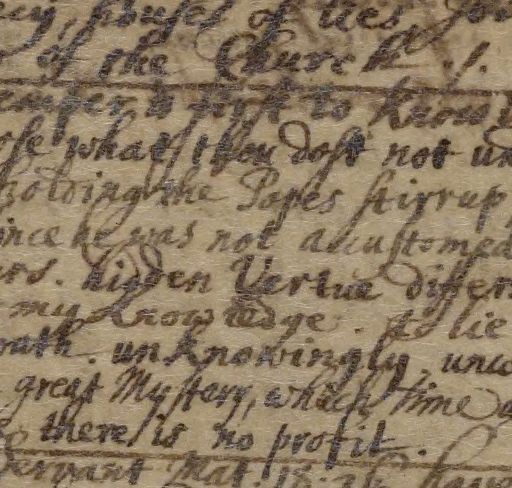 of lies
of the Church ./.
is not to know
ose what thou dost not un
holding the Popes stirrup
ince he was not accustomed
urs. hidden Vertue differs
my knowledge. a lie
oath. unknowingly, unco
great Mystery, which time
there is no profit.
servant Mat. 18. 26